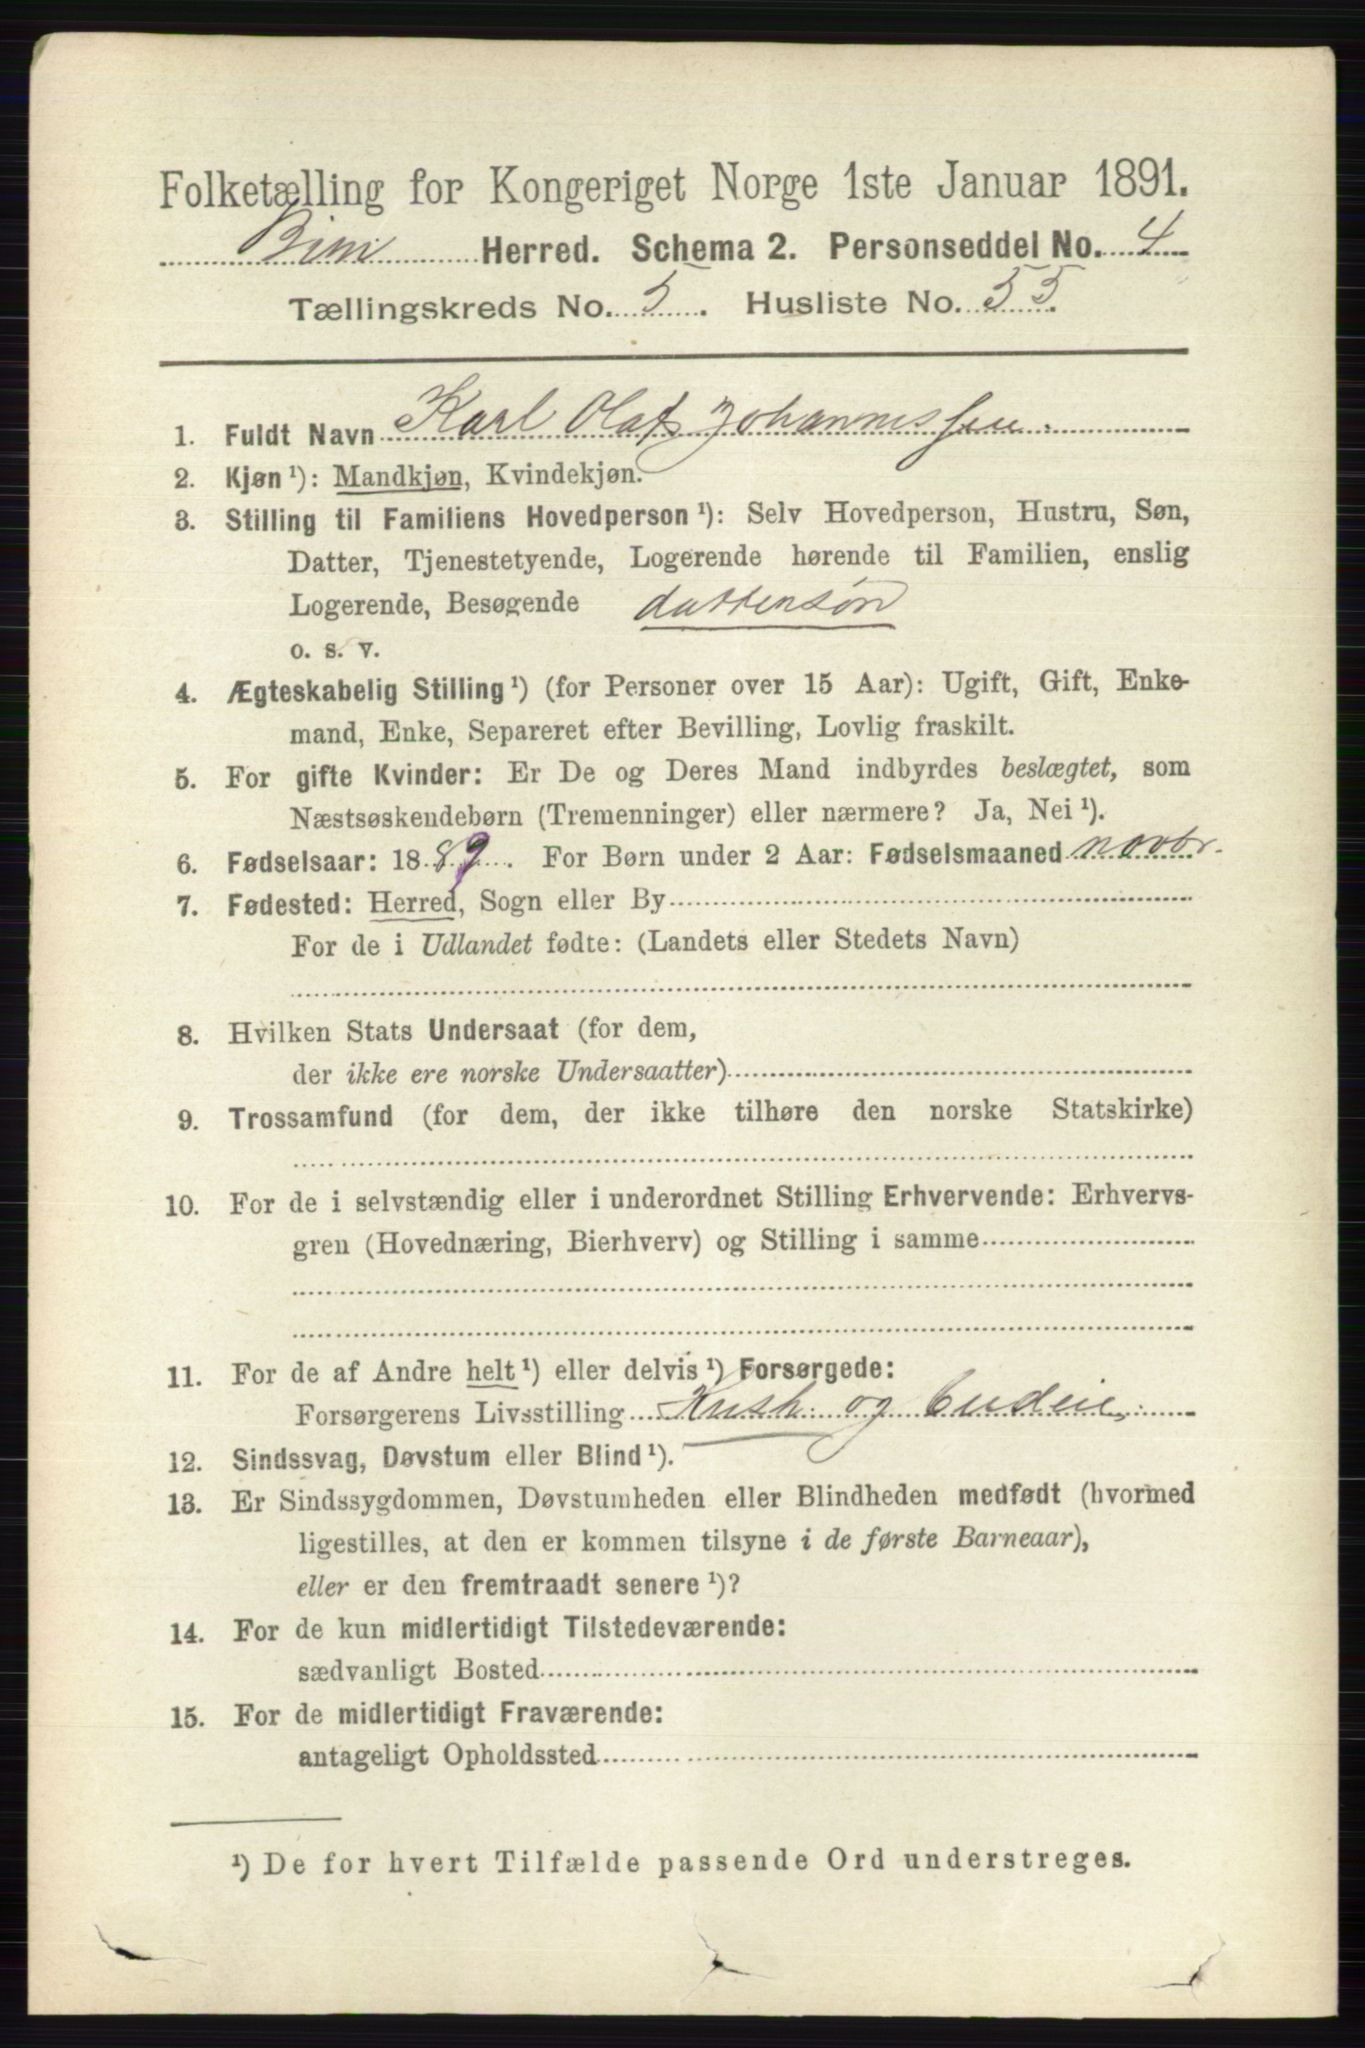 Folketælling for Kongeriget Norge 1ste Januar 1891.
Biri Herred. Schema 2. Personseddel No. 4
Tællingskreds No. 5. Husliste No. 55.
1. Fuldt Navn Karl Olaf Johannessen.
2. Kjøn ¹): Mandkjøn, Kvindekjøn.
3. Stilling til Familiens Hovedperson ¹): Selv Hovedperson, Hustru, Søn,
Datter, Tjenestetyende, Logerende hørende til Familien, enslig
Logerende, Besøgende dattersøn
o. s. v.
4. Ægteskabelig Stilling ¹) (for Personer over 15 Aar): Ugift, Gift, Enke-
mand, Enke, Separeret efter Bevilling, Lovlig fraskilt.
5. For gifte Kvinder: Er De og Deres Mand indbyrdes beslægtet, som
Næstsøskendebørn (Tremenninger) eller nærmere? Ja, Nei ¹).
6. Fødselsaar: 1889. For Børn under 2 Aar: Fødselsmaaned novbr.
7. Fødested: Herred, Sogn eller By
For de i Udlandet fødte: (Landets eller Stedets Navn)
8. Hvilken Stats Undersaat (for dem,
der ikke ere norske Undersaatter)
9. Trossamfund (for dem, der ikke tilhøre den norske Statskirke)
10. For de i selvstændig eller i underordnet Stilling Erhvervende: Erhvervs-
gren (Hovednæring, Bierhverv) og Stilling i samme
11. For de af Andre helt ¹) eller delvis ¹) Forsørgede:
Forsørgerens Livsstilling og
12. Sindssvag, Døvstum eller Blind ¹).
13. Er Sindssygdommen, Døvstumheden eller Blindheden medfødt (hvormed
ligestilles, at den er kommen tilsyne i de første Barneaar),
eller er den fremtraadt senere ¹)?
14. For de kun midlertidigt Tilstedeværende:
sædvanligt Bosted
15. For de midlertidigt Fraværende:
antageligt Opholdssted
¹) De for hvert Tilfælde passende Ord understreges.